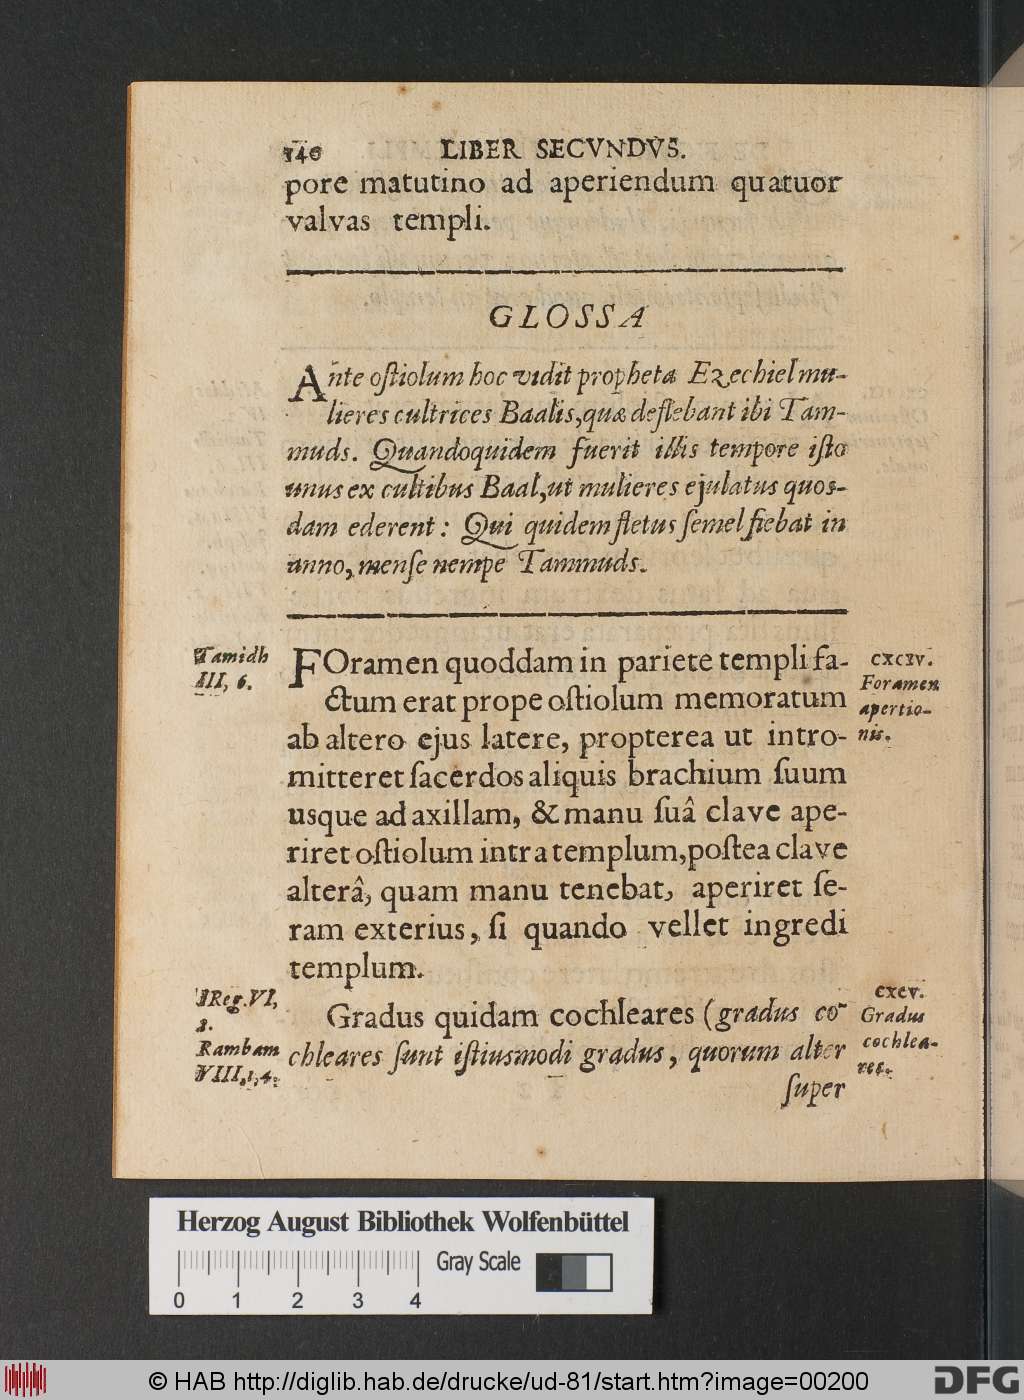 140 LIBER SECVNDVS.
pore matutino ad aperiendum quatuor
valvas templi.
GLOSSA
Ante oſtiolum hoc vidit propheta Ezechiel mu-
lieres cultrices Baalis, quæ deflebant ibi Tam-
muds. Quandoquidem fuerit illis tempore iſto
unus ex cultibus Baal, ut mulieres ejulatus quos-
dam ederent: Qui quidem fletus ſemel fiebat in
anno, menſe nempe Tammuds.
Tamidh
III, 6.
FOramen quoddam in pariete templi fa-
ctum erat prope oſtiolum memoratum
ab altero ejus latere, propterea ut intro-
mitteret ſacerdos aliquis brachium ſuum
usque ad axillam, & manu ſuâ clave ape-
riret oſtiolum intra templum, poſtea clave
alterâ, quam manu tenebat, aperiret ſe-
ram exterius, ſi quando vellet ingredi
templum.
CXCIV.
Foramen
apertio-
nis.
1Reg. VI,
8.
Rambam
VIII, 1, 4.
Gradus quidam cochleares (gradus co-
chleares ſunt iſtiusmodi gradus, quorum alter
ſuper
CXCV.
Gradus
cochlea-
res.
Herzog August Bibliothek Wolfenbüttel
Gray Scale
0 1 2 3 4
© HAB http://diglib.hab.de/drucke/ud-81/start.htm?image=00200
DFG